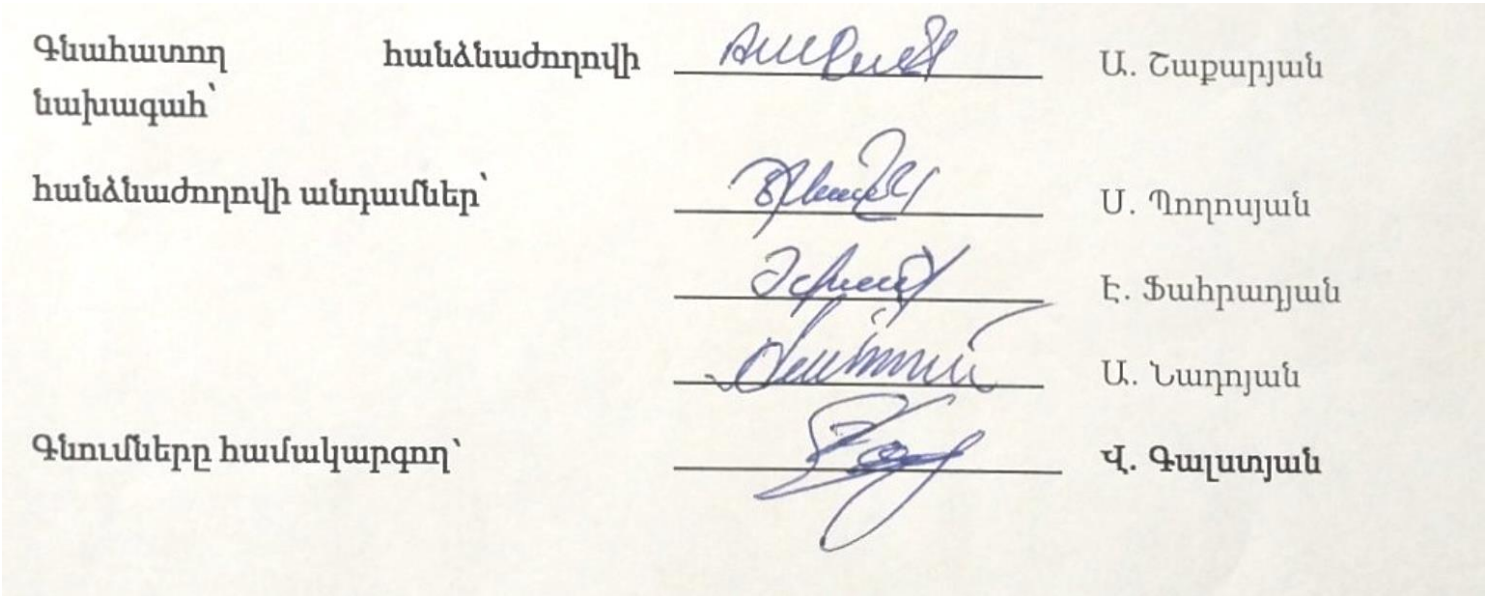 Գնահատող հանձնաժողովի Ա. Շաքարյան
նախագահ՝
հանձնաժողովի անդամներ՝ Ս. Պողոսյան
Է. Ֆահրադյան
Ա. Նադոյան
Գնումները համակարգող՝ Վ. Գալստյան